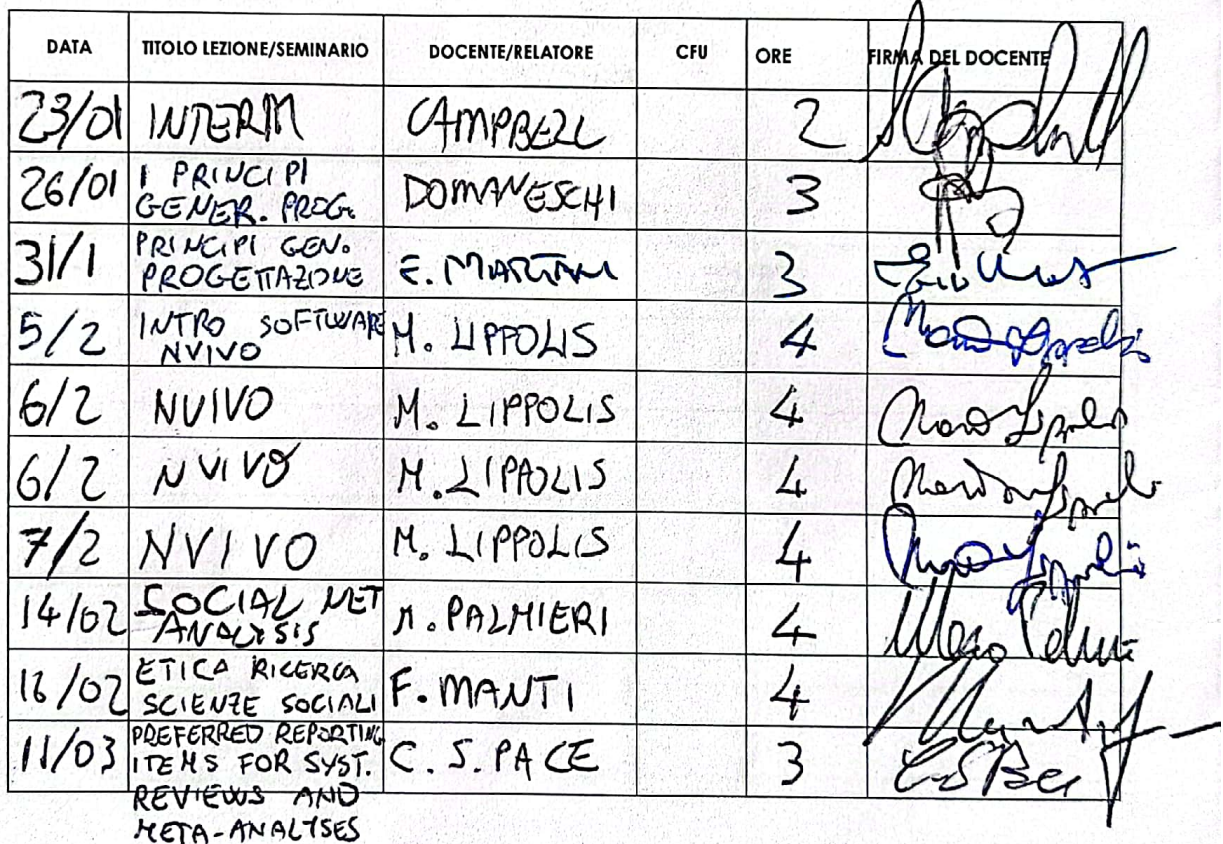 DATA TITOLO LEZIONE/SEMINARIO DOCENTE/RELATORE CFU ORE FIRMA DEL DOCENTE
23/01 INTERM CAMPBELL 2
26/01 I PRINCIPI GENER. PROG. DOMANESCHI 3
31/1 PRINCIPI GEN. PROGETTAZIONE E. MARTINI 3
5/2 INTRO SOFTWARE NVIVO M. LIPPOLIS 4
6/2 NVIVO M. LIPPOLIS 4
6/2 NVIVO M. LIPPOLIS 4
7/2 NVIVO M. LIPPOLIS 4
14/02 SOCIAL NET ANALYSIS M. PALMIERI 4
16/02 ETICA RICERCA SCIENZE SOCIALI F. MANTI 4
11/03 PREFERRED REPORTING ITEMS FOR SYST. REVIEWS AND META-ANALYSES C. S. PACE 3